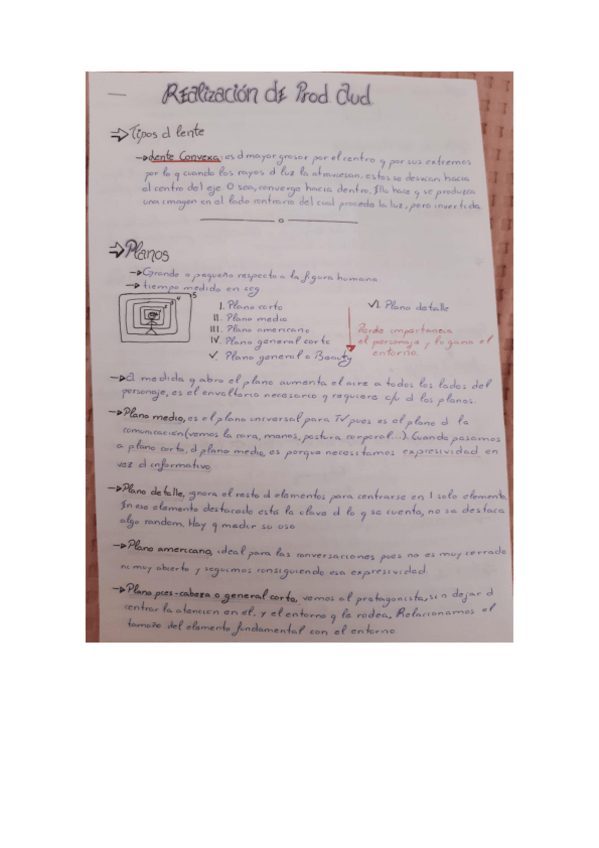 REalización dE Prod. Aud.
⇒Tipos d lente
→Lente Convexa: es d mayor grosor por el centro q por sus extremos
por lo q cuando los rayos d luz la atraviesan, estos se desvían hacia
el centro del eje O sea, converge hacia dentro. Ello hace q se produzca
una imagen en el lado contrario del cual procede la luz, pero invertida.
⇒Planos
→Grande o pequeño respecto a la figura humana
→tiempo medido en seg
5
I. Plano corto
II. Plano medio
III. Plano americano
IV. Plano general corto
V. Plano general o Beauty
VI. Plano detalle
Pierde importancia
el personaje y lo gana el
entorno.
→A medida q abro el plano aumenta el aire a todos los lados del
personaje, es el envoltorio necesario y requiere c/u d los planos.
→Plano medio, es el plano universal para TV pues es el plano d la
comunicación (vemos la cara, manos, postura corporal...). Cuando pasamos
a plano corto, d plano medio, es porque necesitamos expresividad en
vez d informativo.
→Plano detalle, ignora el resto d elementos para centrarse en 1 solo elemento.
En ese elemento destacado está la clave d lo q se cuenta, no se destaca
algo random. Hay q medir su uso
→Plano americano, ideal para las conversaciones pues no es muy cerrado
ni muy abierto y seguimos consiguiendo esa expresividad.
→Plano pies-cabeza o general corto, vemos al protagonista, sin dejar d
centrar la atención en él. y el entorno q lo rodea. Relacionamos el
tamaño del elemento fundamental con el entorno.